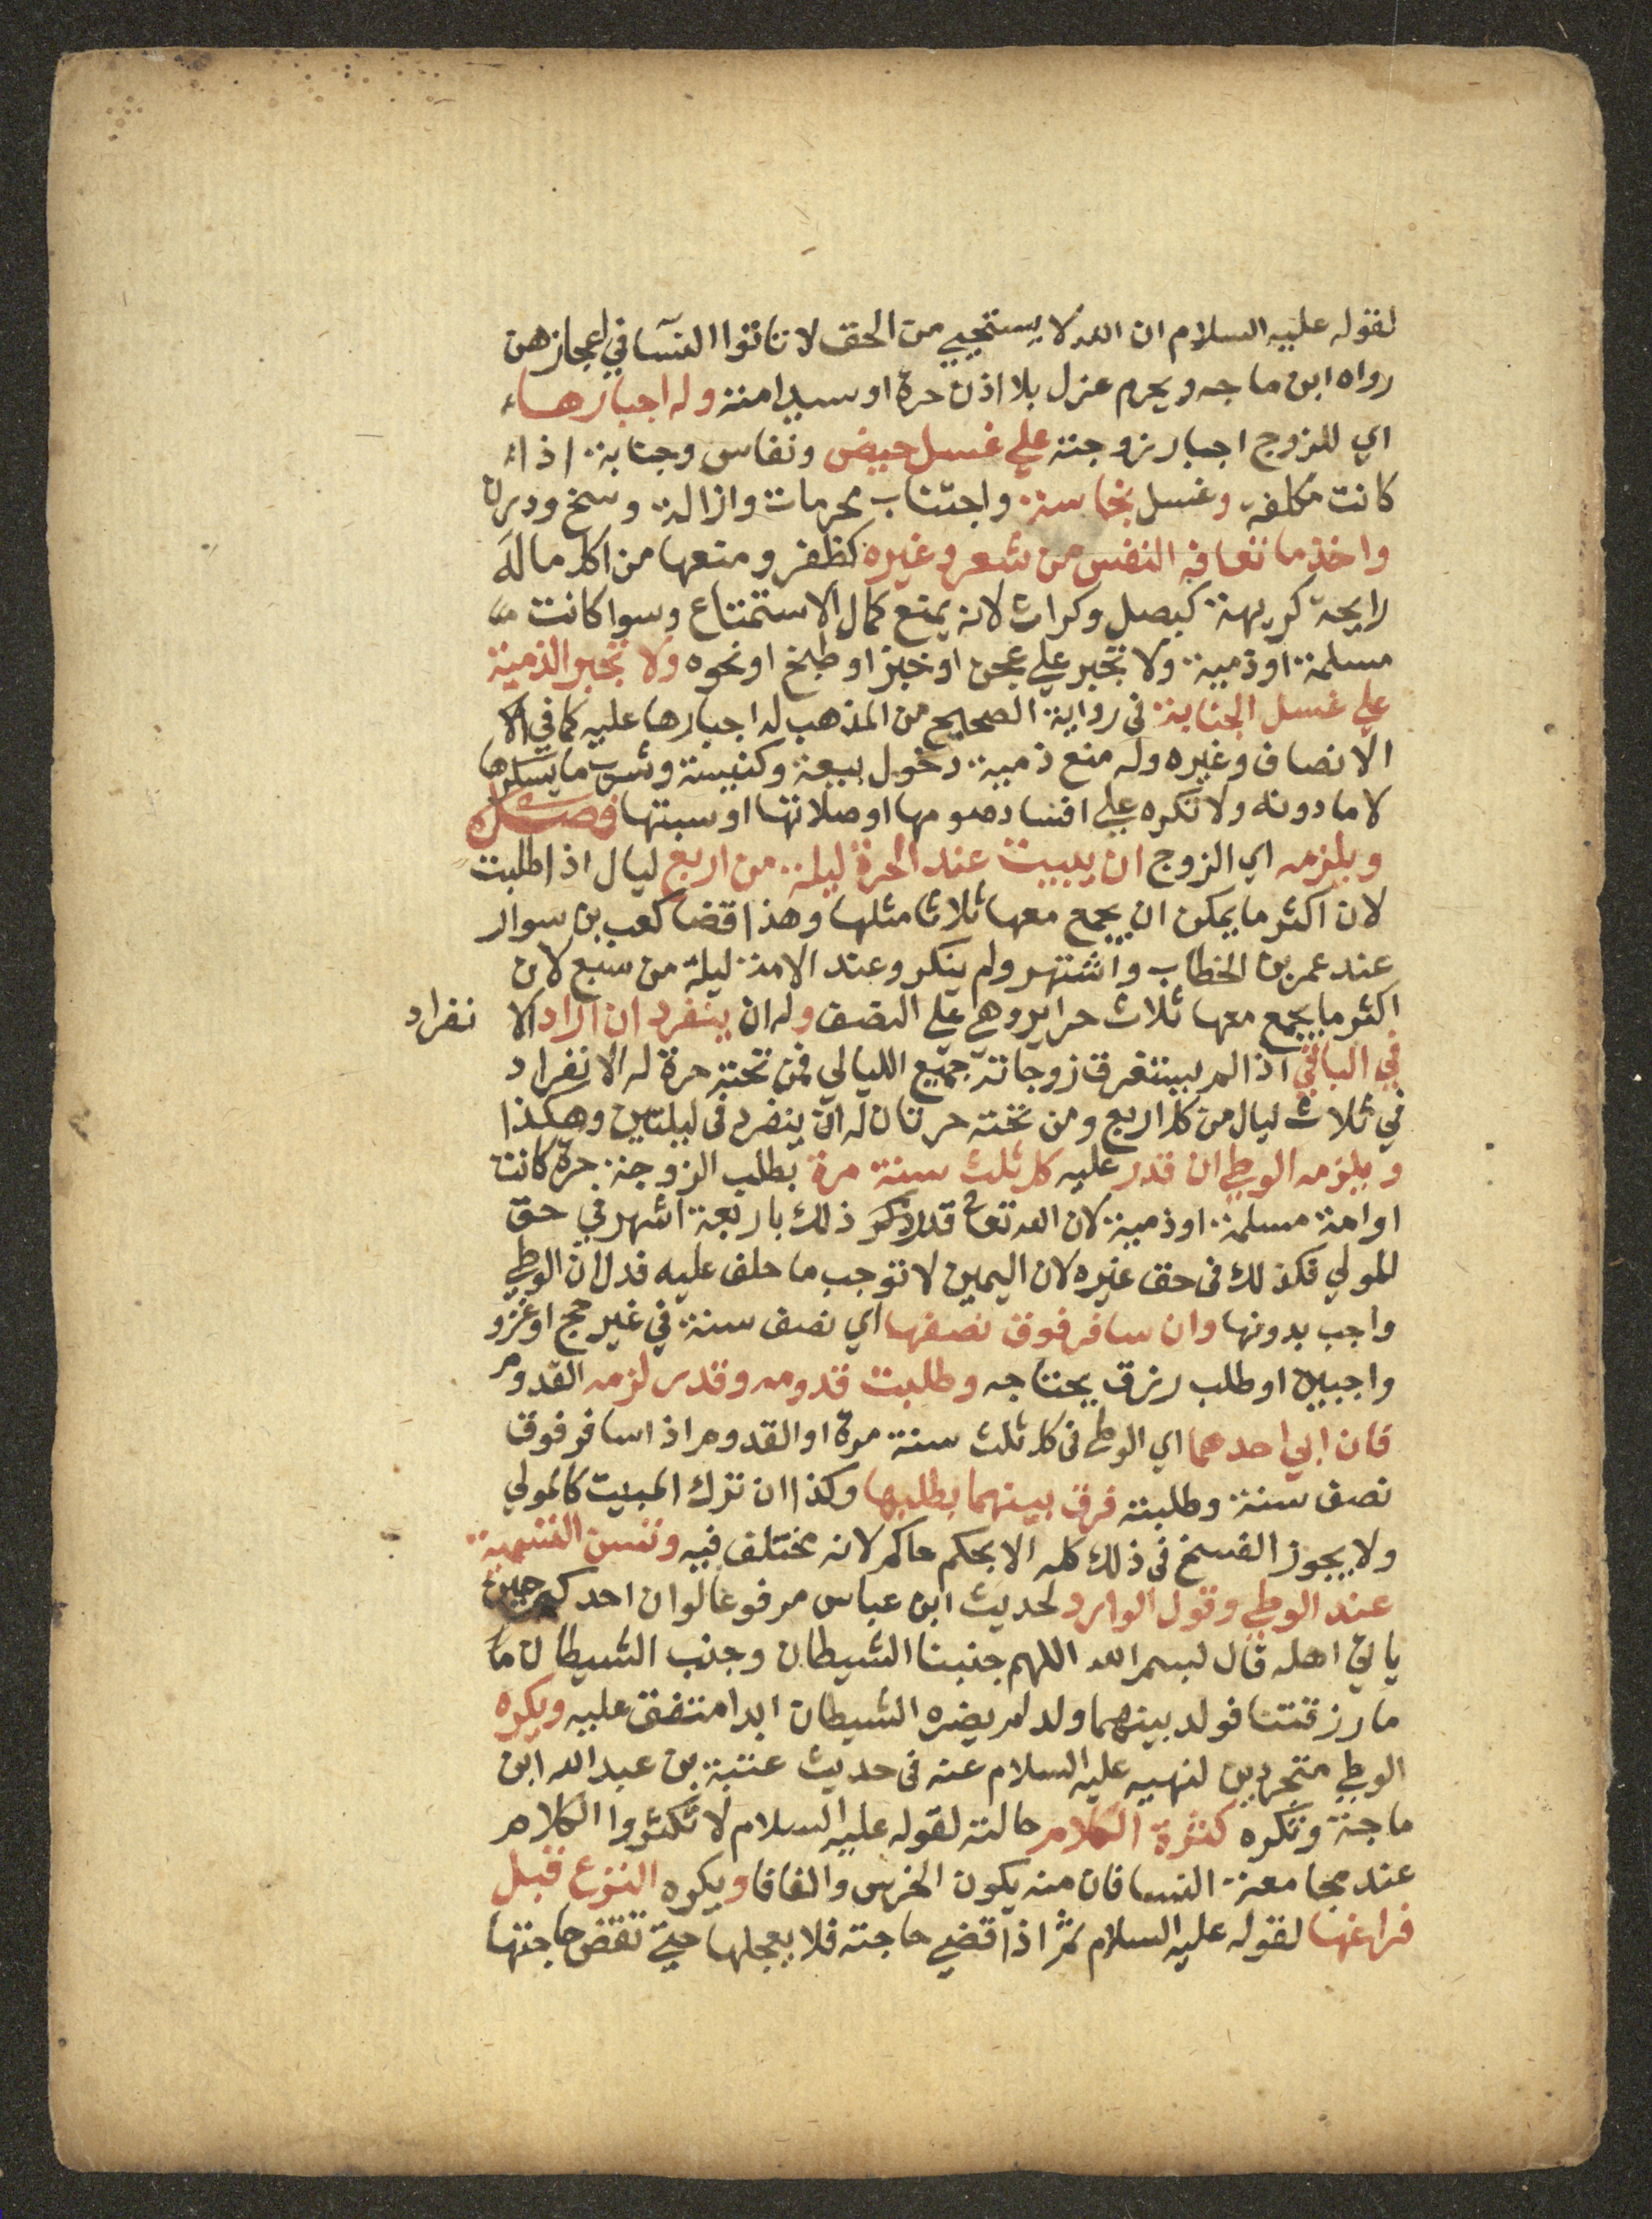 لقوله عليه السلام ان الله لا يستحيي من الحق لا تاتوا النسآ في اعجازهن
رواه ابن ماجه ويحرم عزل بلا اذن حرة او سيد امة وله اجبارها
اي للزوج اجبار زوجته علي غسل حيض ونفاس وجنابة اذا
كانت مكلفه وغسل نجاسة واجتناب محرمات وازالة وسخ ودرن
واخذ ما تعافه النفس من شعر وغيره كظفر ومنعها من اكل ما له
رايحة كريهة كبصل وكراث لانه يمنع كمال الاستمتاع وسوا كانت
مسلمة او ذمية ولا تجبر علي عجن او خبز او طبخ او نحوه ولا تجبر الذمية
علي غسل الجنابة في رواية الصحيح من المذهب له اجبارها عليه كما في الا
الانصاف وغيره وله منع ذمية دخول بيعة وكنيسة وشرب ما يسكرها
لا ما دونه ولا تكره علي افساد صومها او صلاتها او سبتها فصل
ويلزمه اي الزوج ان يبيت عند الحرة ليلة من اربع ليال اذا طلبت
لان اكثر ما يمكن ان يجمع معها ثلاثا مثلها وهذا قضا كعب بن سوار
عند عمر بن الخطاب واشتهر ولم ينكر وعند الامة ليلة من سبع لان
اكثر ما يجمع معها ثلاث حراير وهي علي النصف وله ان ينفرد ان اراد الا نفراد
في الباقي اذا لم يستغرق زوجاته جميع الليالي فمن تحته حرة له الانفراد
في ثلاث ليال من كل اربع ومن تحته حرتان له ان ينفرد في ليلتين وهكذا
ويلزمه الوطي ان قدر عليه كل ثلث سنة مرة بطلب الزوجة حرة كانت
او امة مسلمة او ذمية لان الله تعا قدر ذلك باربعة اشهر في حق
المولي فكذلك في حق غيره لان اليمين لا توجب ما حلف عليه فدل ان الوطي
واجب بدونها وان سافر فوق نصفها اي نصف سنة في غير حج او غزو
واجبين او طلب رزق يحتاجه وطلبت قدومه وقدر لزمه القدوم
فان ابي احدهما اي الوطي في كل ثلث سنة مرة او القدوم اذا سافر فوق
نصف سنة وطلبته فرق بينهما بطلبها وكذا ان ترك المبيت كالمولي
ولا يجوز الفسخ في ذلك كله الا بحكم حاكم لانه مختلف فيه وتسن التسمية
عند الوطي وقول الوارد لحديث ابن عباس مرفوعا لو ان احدكم حين
ياتي اهله قال بسم الله اللهم جنبنا الشيطان وجنب الشيطان ما
ما رزقتنا فولد بينهما ولد لم يضره الشيطان ابدا متفق عليه ويكره
الوطي متجردين لنهيه عليه السلام عنه في حديث عتبة بن عبد الله ابن
ماجة وتكره كثرة الكلام حالته لقوله عليه السلام لا تكثروا الكلام
عند مجامعة النسا فان منه يكون الخرس والفافا ويكره النزع قبل
فراغها لقوله عليه السلام ثم اذا قضي حاجته فلا يعجلها حتي تقض حاجتها